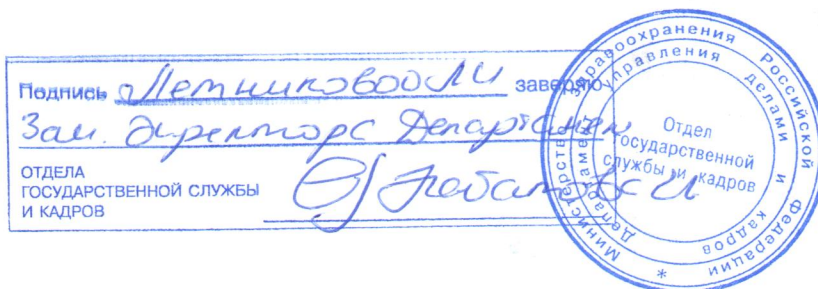 Подпись Летниковой Л.И. заверяю
Зам. директора Департамен
ОТДЕЛА
ГОСУДАРСТВЕННОЙ СЛУЖБЫ
И КАДРОВ
Министерство здравоохранения Российской Федерации *
Департамент управления делами и кадров
Отдел
государственной
службы и кадров